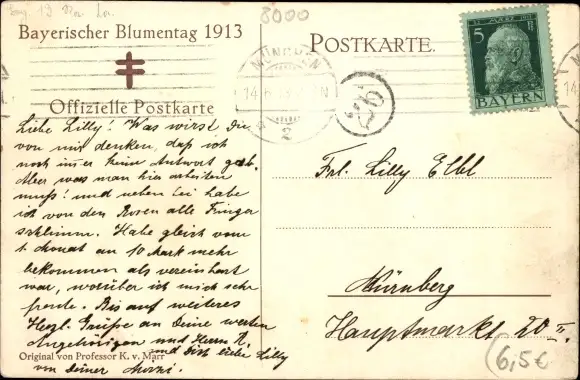 8000
Bayerischer Blumentag 1913
Offizielle Postkarte
POSTKARTE.
MÜNCHEN
2
5
BAYERN
Liebe Lilly! Was wirst Du
von mir denken, daß ich
noch immer keine Antwort gab.
Aber was man hier arbeiten
muß! und neben bei habe
ich von den Rosen alle Finger
schlimm. Habe gleich vom
1. Monat an 10 Mark mehr
bekommen als vereinbart
war, worüber ich mich sehr
freute. Bis auf weiteres
Herzl. Grüße an Deine werten
Angehörigen und Herrn K.
und Dich liebe Lilly
von Deiner
Original von Professor K. v. Marr
Frl. Lilly Elbl
Nürnberg
Hauptmarkt 20 II.
6,5€